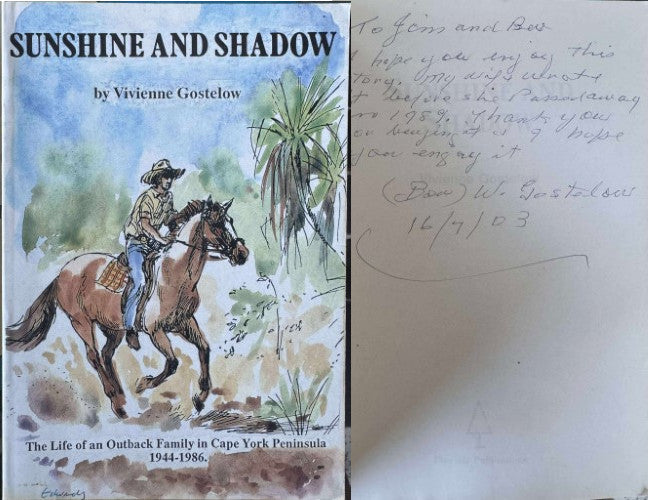 SUNSHINE AND SHADOW
by Vivienne Gostelow
The Life of an Outback Family in Cape York Peninsula
1944-1986.
Edwards
To Jim and Bev
I hope you enjoy this
tory. My wife wrote
t before she Passed away
in 1989. Thank you
ou buying it & I hope
you enjoy it
W. Gostelow
16/7/03